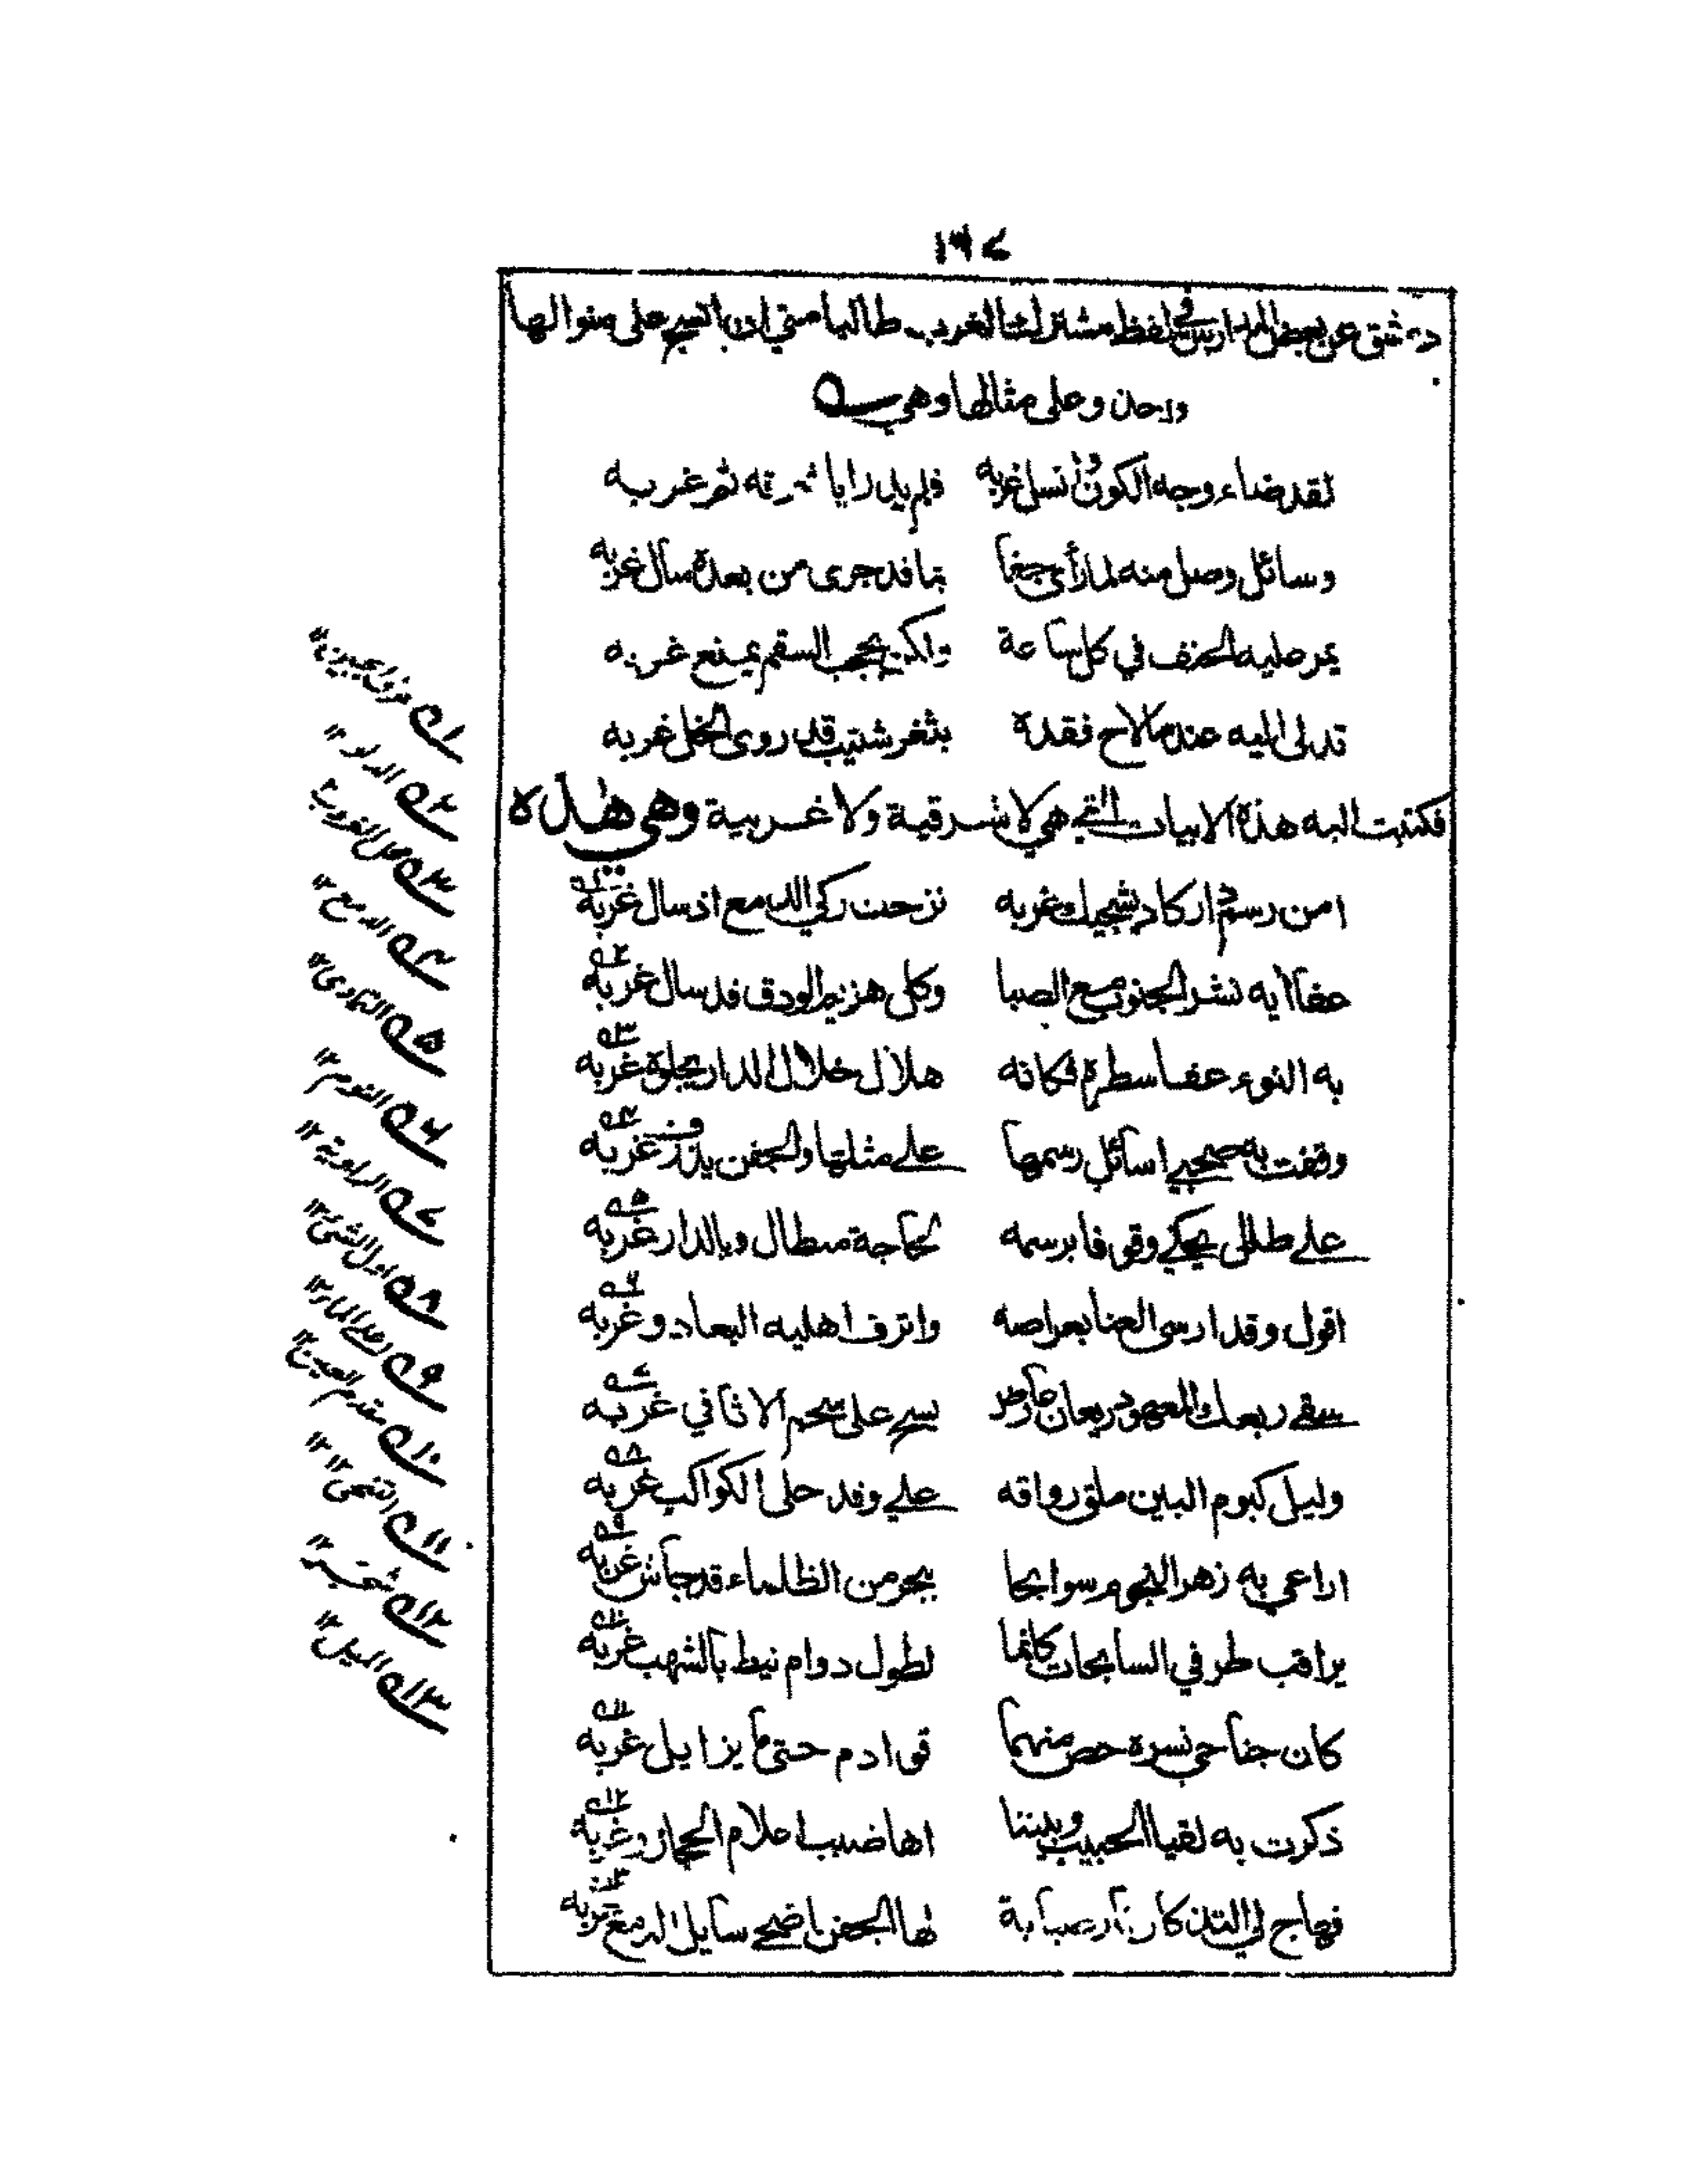 ١٦٧
دمشق عن بعض المدارس في لفظ مشترك الغرب طالبا مني ان انسج على منوالها
وعلى مثالها وهي
لقد ضاء وجه الكون وانسل غربه فلم يدر ايا شرقه ثم غربه
وسائل وصل منه لما رأى جفا بما قد جرى من بعده سال غربه
يمر عليه الحتف في كل ساعة ولكن بحجب السقم يمنع غربه
تدلى اليه عندما لاح فقده بثغر شتيب قد روى الخل غربه
فكتبت اليه هذه الابيات التي هي لا شرقية ولا غربية وهي هذه
امن رسم دار كاد يشجيك غربه نزحت ركي الدمع اذ سال غربه
عفا آيه نشر الجنوب مع الصبا وكل هزيم الودق قد سال غربه
به النوء عفا سطره فكانه هلال خلال الدار يجلوه غربه
وقفت به صحبي اسائل رسمها على مثلها والجفن يذرف غربه
على طلل يحكي وقوفا برسمه لحاجة مطال وبالدار غربه
اقول وقد ارسى العنا بعراصه واترف اهليه البعاد وغربه
سقى ربعك المعهود ريعان عارض يسح على سحم الاثافي غربه
وليل كيوم البين ملق رواقه علي وقد حلى الكواكب غربه
اراعي به زهر النجوم سوابحا ببحر من الظلماء قد جاش غربه
يراقب طرفي السابحات كانما لطول دوام نيط بالشهب غربه
كان جناحي نسره حص منهما قوادم حتى ما يزايل غربه
ذكرت به لقيا الحبيب وبيننا اهاضب اعلام الحجاز وغربه
فهاج لي التذكار نار صبابة لها الجفن اضحى سايل الدمع غربه
١
٢ الدلو ١٢
٣ محل الغروب
٤ الدمع ١٢
٥ التمادى ١٢
٦ النوم ١٢
٧ الراوية ١٢
٨ اول الشئ ١٢
٩ اعلى الماء ١٢
١٠ مقدم العين ١٢
١١ التنحى ١٢
١٢ شجر
١٣ السيل ١٢